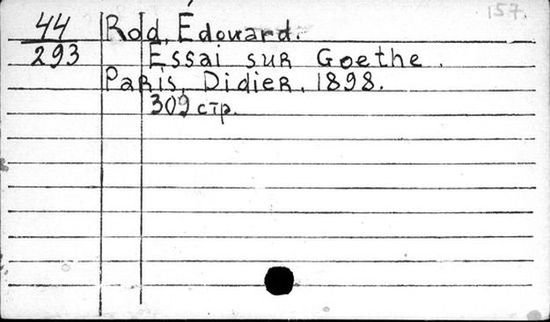 157.
44 Rod, Édouard.
293 Essai sur Goethe.
Paris, Didier, 1898.
309 стр.